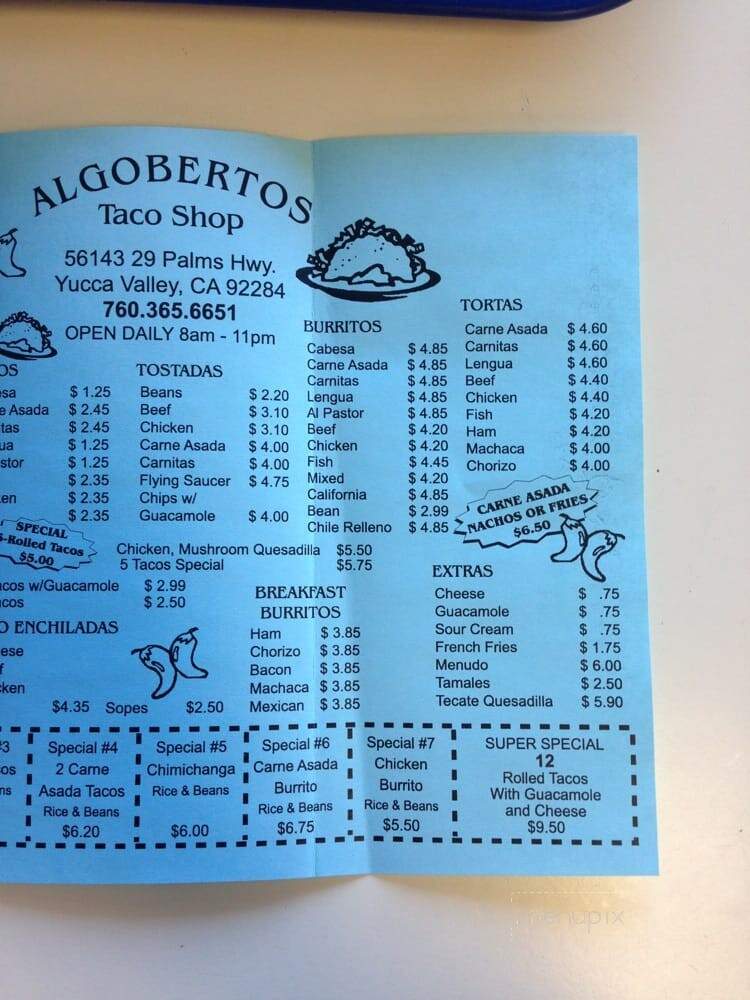 ALGOBERTOS
Taco Shop
56143 29 Palms Hwy.
Yucca Valley, CA 92284
760.365.6651
OPEN DAILY 8am - 11pm
OS
esa $ 1.25
e Asada $ 2.45
tas $ 2.45
ua $ 1.25
stor $ 1.25
$ 2.35
en $ 2.35
$ 2.35
SPECIAL
-Rolled Tacos
$5.00
TOSTADAS
Beans $ 2.20
Beef $ 3.10
Chicken $ 3.10
Carne Asada $ 4.00
Carnitas $ 4.00
Flying Saucer $ 4.75
Chips w/
Guacamole $ 4.00
BURRITOS
Cabesa $ 4.85
Carne Asada $ 4.85
Carnitas $ 4.85
Lengua $ 4.85
Al Pastor $ 4.85
Beef $ 4.20
Chicken $ 4.20
Fish $ 4.45
Mixed $ 4.20
California $ 4.85
Bean $ 2.99
Chile Relleno $ 4.85
TORTAS
Carne Asada $ 4.60
Carnitas $ 4.60
Lengua $ 4.60
Beef $ 4.40
Chicken $ 4.40
Fish $ 4.20
Ham $ 4.20
Machaca $ 4.00
Chorizo $ 4.00
CARNE ASADA
NACHOS OR FRIES
$6.50
Chicken, Mushroom Quesadilla $5.50
5 Tacos Special $5.75
acos w/Guacamole $ 2.99
acos $ 2.50
O ENCHILADAS
ese
f
ken
$4.35 Sopes $2.50
BREAKFAST
BURRITOS
Ham $ 3.85
Chorizo $ 3.85
Bacon $ 3.85
Machaca $ 3.85
Mexican $ 3.85
EXTRAS
Cheese $ .75
Guacamole $ .75
Sour Cream $ .75
French Fries $ 1.75
Menudo $ 6.00
Tamales $ 2.50
Tecate Quesadilla $ 5.90
#3
os
ns
Special #4
2 Carne
Asada Tacos
Rice & Beans
$6.20
Special #5
Chimichanga
Rice & Beans
$6.00
Special #6
Carne Asada
Burrito
Rice & Beans
$6.75
Special #7
Chicken
Burrito
Rice & Beans
$5.50
SUPER SPECIAL
12
Rolled Tacos
With Guacamole
and Cheese
$9.50
menupix